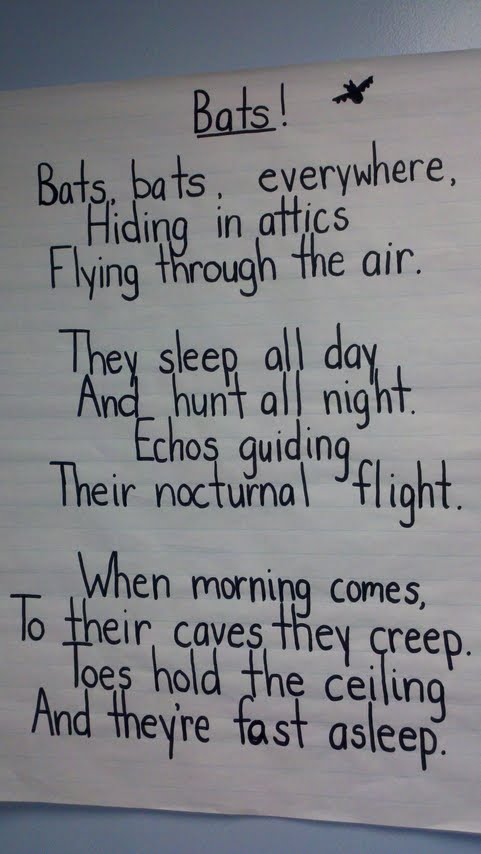 Bats!
Bats, bats, everywhere,
Hiding in attics
Flying through the air.
They sleep all day
And hunt all night.
Echos guiding
Their nocturnal flight.
When morning comes,
To their caves they creep.
Toes hold the ceiling
And they're fast asleep.